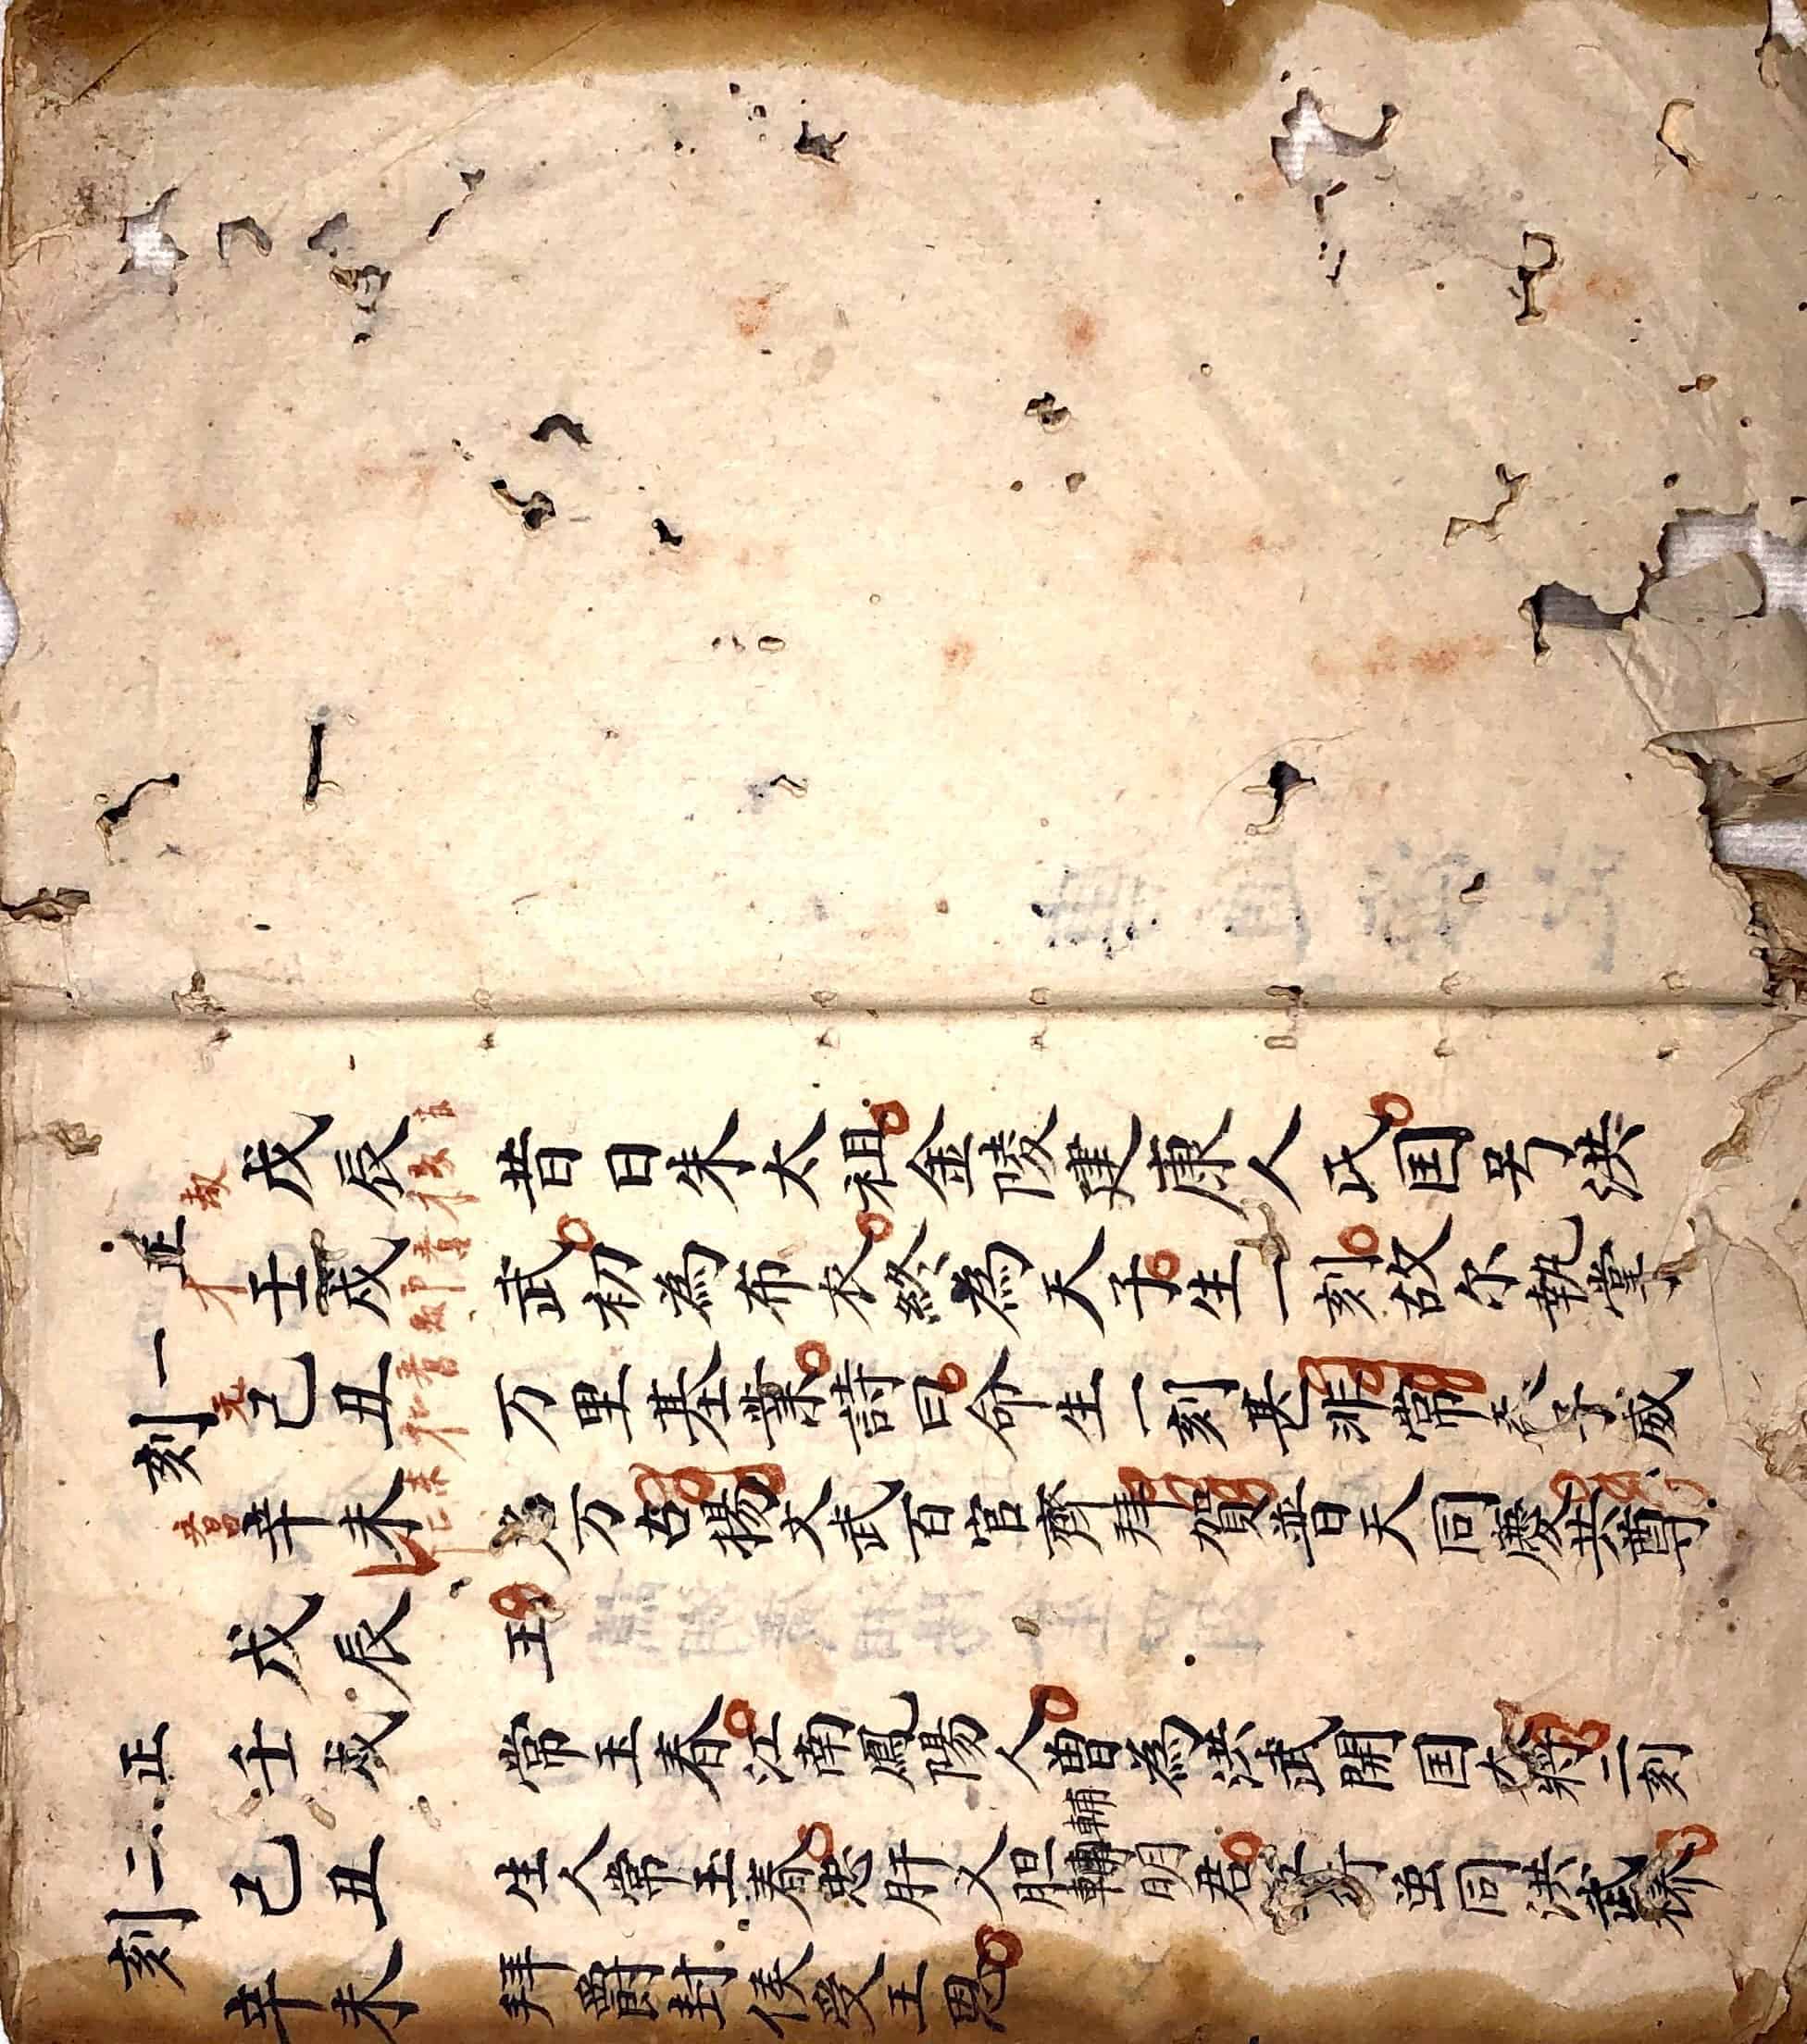 正一刻
戊辰
壬戌
己丑
辛未
昔日朱太祖金陵建康人氏国号洪
武初為布衣終為天子生一刻故尔執掌
万里基業詩曰命生一刻甚非常天子威
万古揚文武百官齊拜賀普天同慶共尊
王
正二刻
戊辰
壬戌
己丑
辛未
常玉春江南鳳陽人曾為洪武開国大將二刻
生人常玉春忠肝义胆輔明君虽同洪武樣
拜爵封侯受王恩